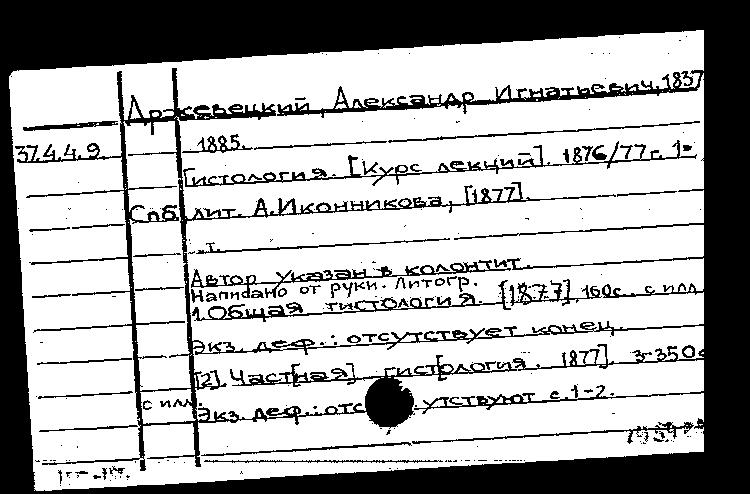 Држевецкий, Александр Игнатьевич, 1837
37.4.4.9. 1885.
Гистология. [Курс лекций]. 1876/77 г. 1-
Спб, лит. А. Иконникова, [1877].
т.
Автор указан в колонтит.
Написано от руки. Литогр.
1. Общая гистология. [1877], 160с. с илл
Экз. деф.: отсутствует конец.
[2]. Част[ная] гист[ология. 1877]. 3-350с
с илл. Экз. деф.: отсутствуют с. 1-2.